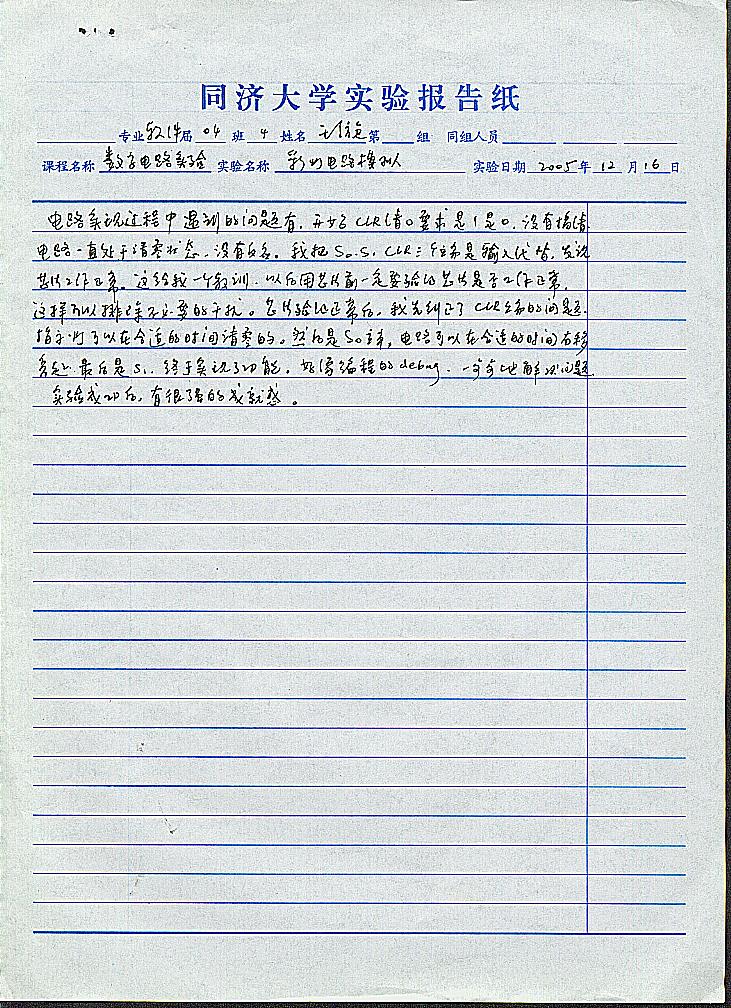 同济大学实验报告纸
专业 软件 届 04 班 4 姓名 第 组 同组人员
课程名称 数字电路实验 实验名称 彩灯电路模拟 实验日期 2005年 12 月 16 日
电路实现过程中遇到的问题有,开始 CLR清0要求是1是0,没有搞清
电路一直处于清零状态,没有反应。我把 S0、S1 CLR三个信号是输入代替,发现
芯片工作正常。这给我一个教训,以后用芯片前一定要验证芯片是否工作正常,
这样可以排除不必要的干扰。芯片验证正常后,我先纠正了 CLR信号的问题
指示灯可以在合适的时间清零的。然后是S0信号,电路可以在合适的时间右移
最后是 S1 终于实现了功能,好像编程的debug,一步步地解决问题
实验成功后,有很强的成就感。